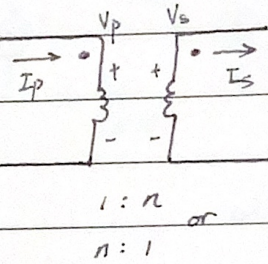 Vp Vs
Ip + + Is
- -
1 : n
or
n : 1